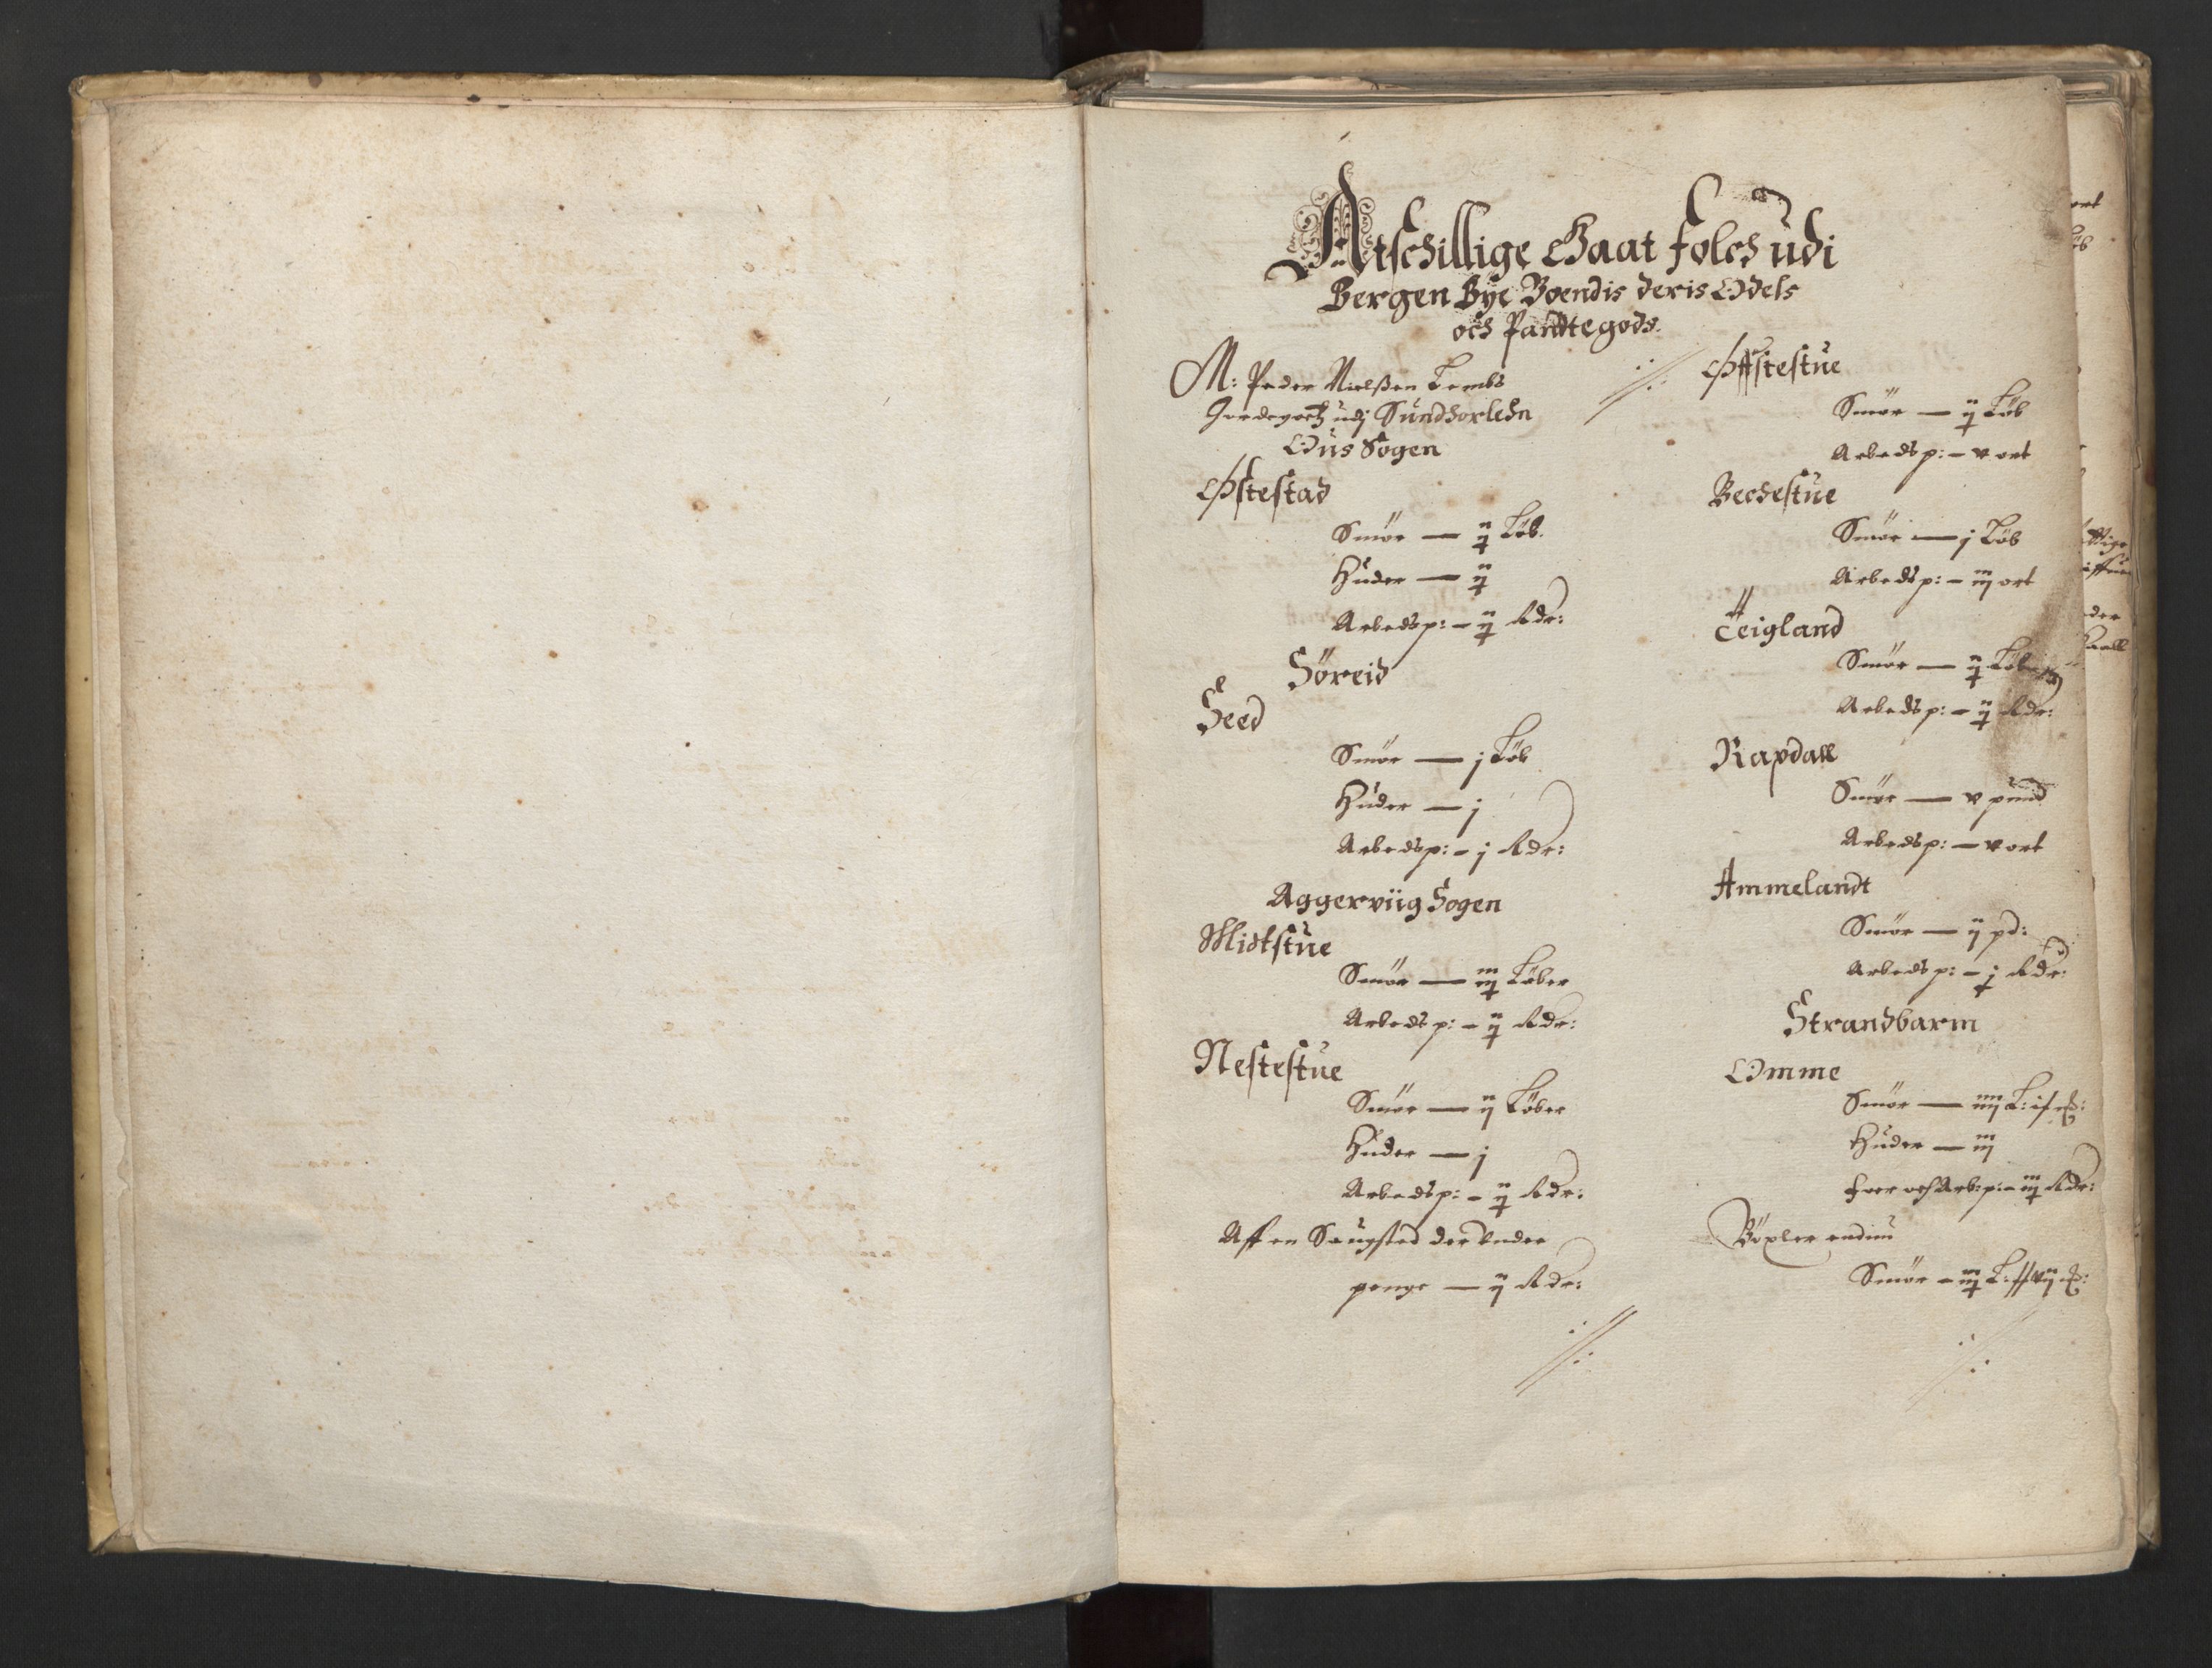 Atschillige Gaat folch udi
Bergen Bye Boendis deris Odels
och Pandtegods.
M: Peder Nielßen Lembs
Jordegods udj Sundhorlehn
Ous Sogen
Østestad
Smør — ij Løb.
Huder — ij
Arbedsp: - ij Rdr:
Søreid
Seed
Smør — j Løb
Huder — j
Arbedsp: - j Rdr:
Aggerviig Sogen
Midtstue
Smør — iij Løber
Arbedsp: - ij Rdr:
Nestestue
Smør — ij Løber
Huder — j
Arbedsp: - ij Rdr:
Aff en Saugsted der under
penge — ij Rdr:
Øffstestue
Smør — ij Løb
Arbedsp: - v ort
Bechestue
Smør — j Løb
Arbedsp: - iij ort
Teigland
Smør — ij Løb
Arbedsp: - ij Rdr:
Rapdall
Smør — v pund
Arbedsp: — v ort
Ammelandt
Smør — ij pd:
Arbedsp: - j Rdr:
Strandbarm
Omme
Smør — iiij L:
Huder — iij
foer och Arb:p: - iij Rdr:
Böxler endnu
Smør - iij L: